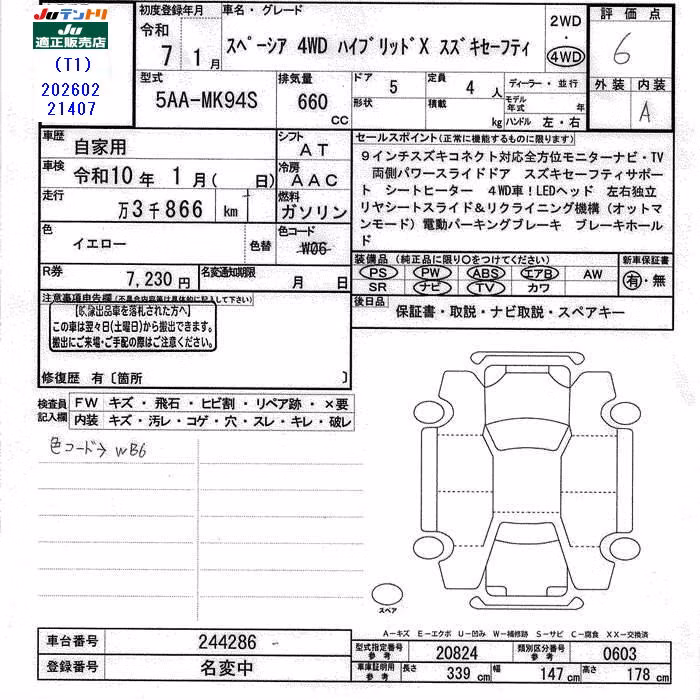 Juテントリ
Ju
適正販売店
(T1)
202602
21407
初度登録年月
令和
7 1月
車名・グレード
スペーシア 4WD ハイブリッドX スズキセーフティ
2WD
・
4WD
評価点
6
外装 内装
A
型式
5AA-MK94S
排気量
660
CC
ドア 5
形状
定員 4 人
積載 kg
ディーラー・並行
モデル年式 年
ハンドル 左・右
車歴
自家用
シフト
AT
車検
令和10年 1月( 日)
冷房
AAC
走行
万3千866 km
燃料
ガソリン
色
イエロー
色替
色コード
W06
R券
7,230円
名変通知期限
月 日
セールスポイント(正常に機能するものに限ります)
9インチスズキコネクト対応全方位モニターナビ・TV
両側パワースライドドア スズキセーフティサポー
ト シートヒーター 4WD車!LEDヘッド 左右独立
リヤシートスライド&リクライニング機構(オットマ
ンモード)電動パーキングブレーキ ブレーキホール
ド
装備品(純正品に限り○をつけてください)
PS PW ABS エアB AW
SR ナビ TV カワ
新車保証書
有・無
後日品
保証書・取説・ナビ取説・スペアキー
注意事項申告欄(不具合内容等は具体的に記入して下さい)
【映像出品車を落札された方へ】
この車は翌々日(土曜日)から搬出できます。
搬出にご来場・ご手配の際はご注意ください。
修復歴 有〔箇所 〕
検査員
記入欄
FW キズ・飛石・ヒビ割・リペア跡・×要
内装 キズ・汚レ・コゲ・穴・スレ・キレ・破レ
色コード→WB6
スペア
A-キズ E-エクボ U-凹み W-補修跡 S-サビ C-腐食 XX-交換済
車台番号
244286
登録番号
名変中
型式指定番号
参考
20824
類別区分番号
参考
0603
車庫証明用
参考
長さ 339 cm 幅 147 cm 高さ 178 cm